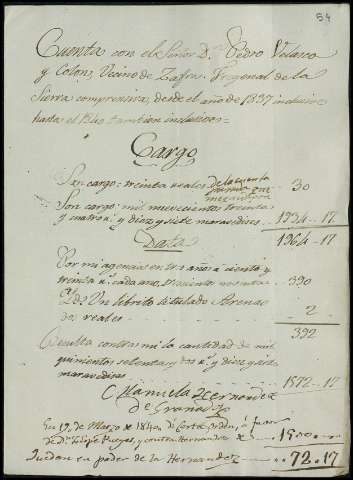 54
Cuenta con el Señor D.n Pedro Velasco
y Colon, Vecino de Zafra. Fregenal de la
Sierra comprensiva, desde el año de 1837 inclusive
hasta el 1840 tambien inclusives=
Cargo
Son cargo: treinta reales de la cuenta 30
Son cargo: mil nuevecientos treinta
y cuatro r.s y diez y siete maravedises 1934..17
Data 1964..17
Por mi agencia en tres años a ciento y
treinta r.s cada ano, trescientos noventa 390
Yd. Un librito titulado Arenas
dos reales 2
392
Resulta contra mi la cantidad de mil
quinientos setenta y dos r.s y diez y siete
maravedises 1572..17
Manuela Hernandez
de Granado
En 19, de Marzo de 1840 di Carta orden, á favor
de D.n Felipe Reyes, y contra Hernandez 1500
Quedan en poder de la Hernandez 72..17